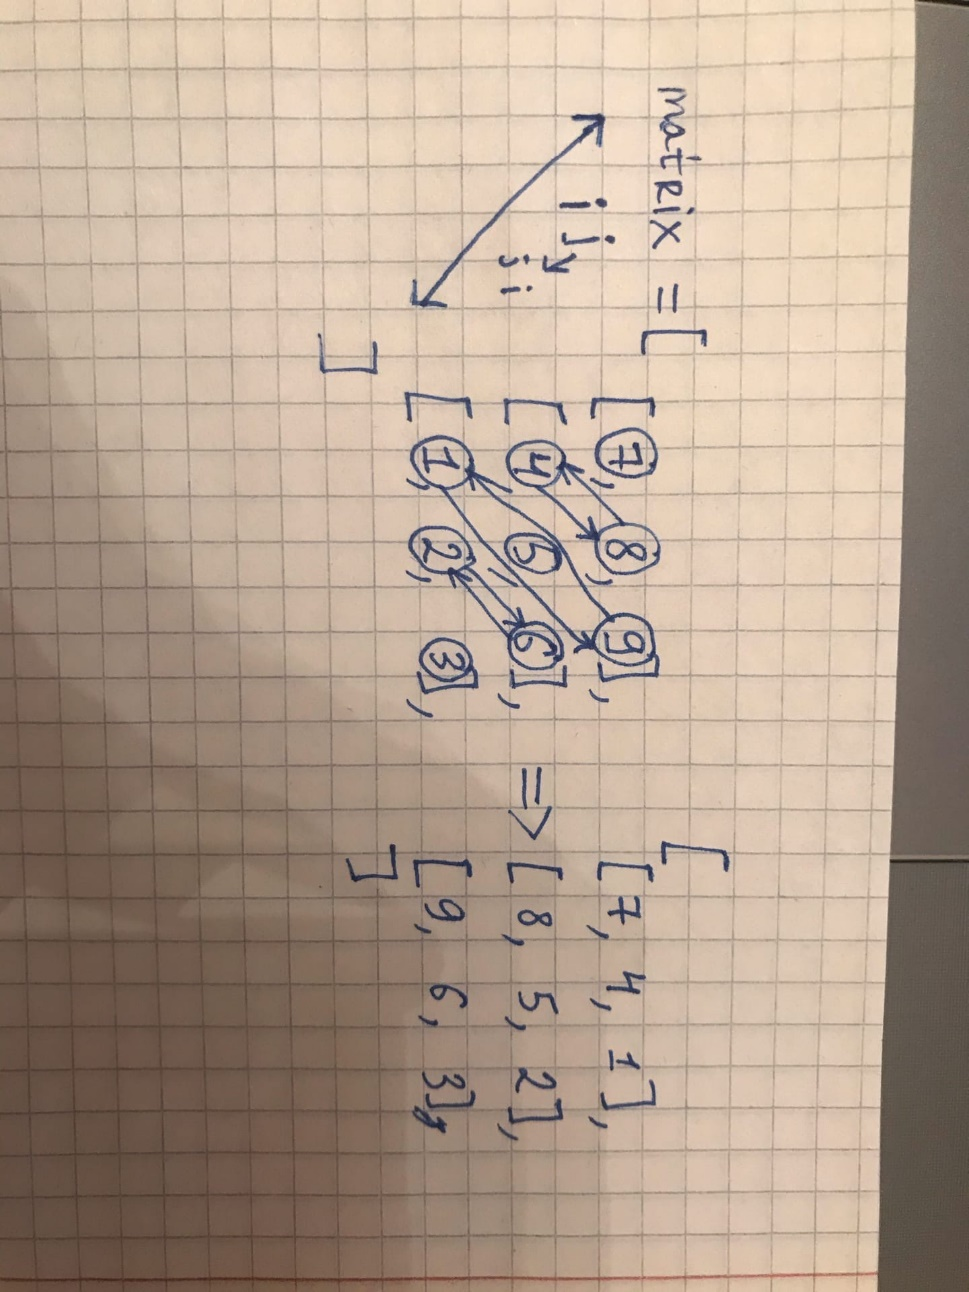 matrix = [
[7, 8, 9],
[4, 5, 6],
[1, 2, 3],
]
i j
j i
=>
[
[7, 4, 1],
[8, 5, 2],
[9, 6, 3],
]